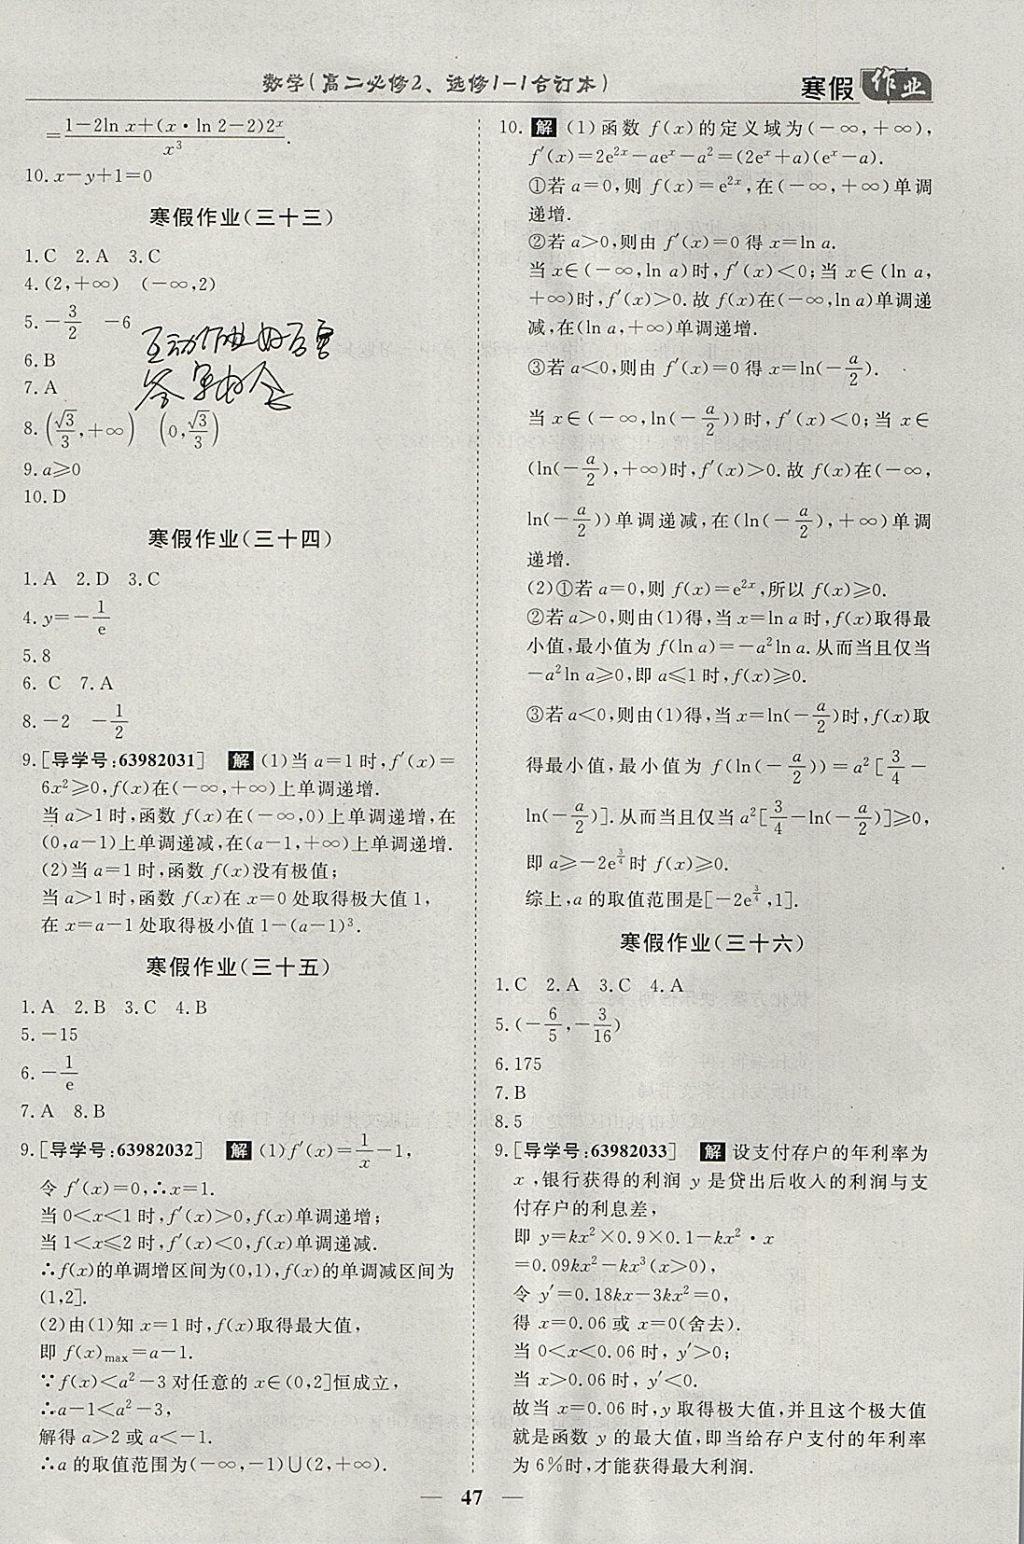 数学(高二必修2、选修1-1合订本)
寒假作业
=\frac{1-2ln x+(x·ln 2-2)2^x}{x^3}.
10.x-y+1=0
寒假作业(三十三)
1.C 2.A 3.C
4.(2,+∞) (-∞,2)
5.-\frac{3}{2} -6
6.B
7.A
8.(\frac{√3}{3},+∞) (0,\frac{√3}{3})
9.a≥0
10.D
寒假作业(三十四)
1.A 2.D 3.C
4.y=-\frac{1}{e}
5.8
6. C 7.A
8.-2 -\frac{1}{2}
9.[导学号:63982031] 解 (1)当 a=1 时,f′(x)=
6x²≥0,f(x)在(-∞,+∞)上单调递增.
当 a>1 时,函数 f(x)在(-∞,0)上单调递增,在
(0,a-1)上单调递减,在(a-1,+∞)上单调递增.
(2)当 a=1 时,函数 f(x)没有极值;
当 a>1 时,函数 f(x)在 x=0 处取得极大值 1,
在 x=a-1 处取得极小值 1-(a-1)³.
寒假作业(三十五)
1.A 2.B 3.C 4.B
5.-15
6.-\frac{1}{e}
7.A 8.B
9.[导学号:63982032] 解 (1)f′(x)=\frac{1}{x}-1,
令 f′(x)=0,∴x=1.
当 0<x<1 时,f′(x)>0,f(x)单调递增;
当 1<x≤2 时,f′(x)<0,f(x)单调递减.
∴f(x)的单调增区间为(0,1),f(x)的单调减区间为
(1,2].
(2)由(1)知 x=1 时,f(x)取得最大值,
即 f(x)_{max}=a-1.
∵f(x)<a²-3 对任意的 x∈(0,2]恒成立,
∴a-1<a²-3,
解得 a>2 或 a<-1.
∴a 的取值范围为(-∞,-1)∪(2,+∞).
10. 解 (1)函数 f(x)的定义域为(-∞,+∞),
f′(x)=2e^{2x}-ae^x-a²=(2e^x+a)(e^x-a).
①若 a=0,则 f(x)=e^{2x},在(-∞,+∞)单调
递增.
②若 a>0,则由 f′(x)=0 得 x=ln a.
当 x∈(-∞,ln a)时,f′(x)<0;当 x∈(ln a,
+∞)时,f′(x)>0.故 f(x)在(-∞,ln a)单调递
减,在(ln a,+∞)单调递增.
③若 a<0,则由 f′(x)=0 得 x=ln(-\frac{a}{2}).
当 x∈(-∞,ln(-\frac{a}{2}))时,f′(x)<0;当 x∈
(ln(-\frac{a}{2}),+∞)时,f′(x)>0.故 f(x)在(-∞,
ln(-\frac{a}{2}))单调递减,在(ln(-\frac{a}{2}),+∞)单调
递增.
(2)①若 a=0,则 f(x)=e^{2x},所以 f(x)≥0.
②若 a>0,则由(1)得,当 x=ln a 时,f(x)取得最
小值,最小值为 f(ln a)=-a²ln a.从而当且仅当
-a²ln a≥0,即 a≤1 时,f(x)≥0.
③若 a<0,则由(1)得,当 x=ln(-\frac{a}{2})时,f(x)取
得最小值,最小值为 f(ln(-\frac{a}{2}))=a²[\frac{3}{4}-
ln(-\frac{a}{2})].从而当且仅当 a²[\frac{3}{4}-ln(-\frac{a}{2})]≥0,
即 a≥-2e^{\frac{3}{4}}时 f(x)≥0.
综上,a 的取值范围是[-2e^{\frac{3}{4}},1].
寒假作业(三十六)
1.C 2.A 3.C 4.A
5.(-\frac{6}{5},-\frac{3}{16})
6.175
7.B
8.5
9.[导学号:63982033] 解 设支付存户的年利率为
x,银行获得的利润 y 是贷出后收入的利润与支
付存户的利息差,
即 y=kx²×0.9×0.1-kx²·x
=0.09kx²-kx³(x>0),
令 y′=0.18kx-3kx²=0,
得 x=0.06 或 x=0(舍去).
当 0<x<0.06 时,y′>0;
当 x>0.06 时,y′<0.
故当 x=0.06 时,y 取得极大值,并且这个极大值
就是函数 y 的最大值,即当给存户支付的年利率
为 6%时,才能获得最大利润.
— 47 —